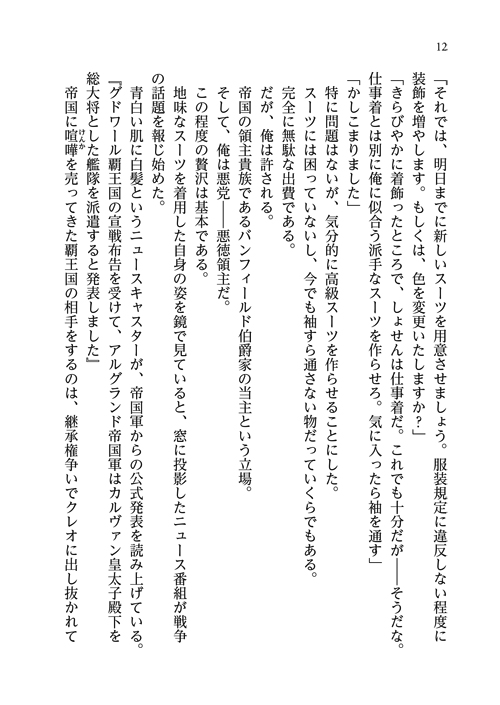 12
「それでは、明日までに新しいスーツを用意させましょう。服装規定に違反しない程度に
装飾を増やします。もしくは、色を変更いたしますか？」
「きらびやかに着飾ったところで、しょせんは仕事着だ。これでも十分だが――そうだな。
仕事着とは別に俺に似合う派手なスーツを作らせろ。気に入ったら袖を通す」
「かしこまりました」
特に問題はないが、気分的に高級スーツを作らせることにした。
スーツには困っていないし、今でも袖すら通さない物だっていくらでもある。
完全に無駄な出費である。
だが、俺は許される。
帝国の領主貴族であるバンフィールド伯爵家の当主という立場。
そして、俺は悪党――悪徳領主だ。
この程度の贅沢は基本である。
地味なスーツを着用した自身の姿を鏡で見ていると、窓に投影したニュース番組が戦争
の話題を報じ始めた。
青白い肌に白髪というニュースキャスターが、帝国軍からの公式発表を読み上げている。
『グドワール覇王国の宣戦布告を受けて、アルグランド帝国軍はカルヴァン皇太子殿下を
総大将とした艦隊を派遣すると発表しました』
帝国に喧嘩を売ってきた覇王国の相手をするのは、継承権争いでクレオに出し抜かれて